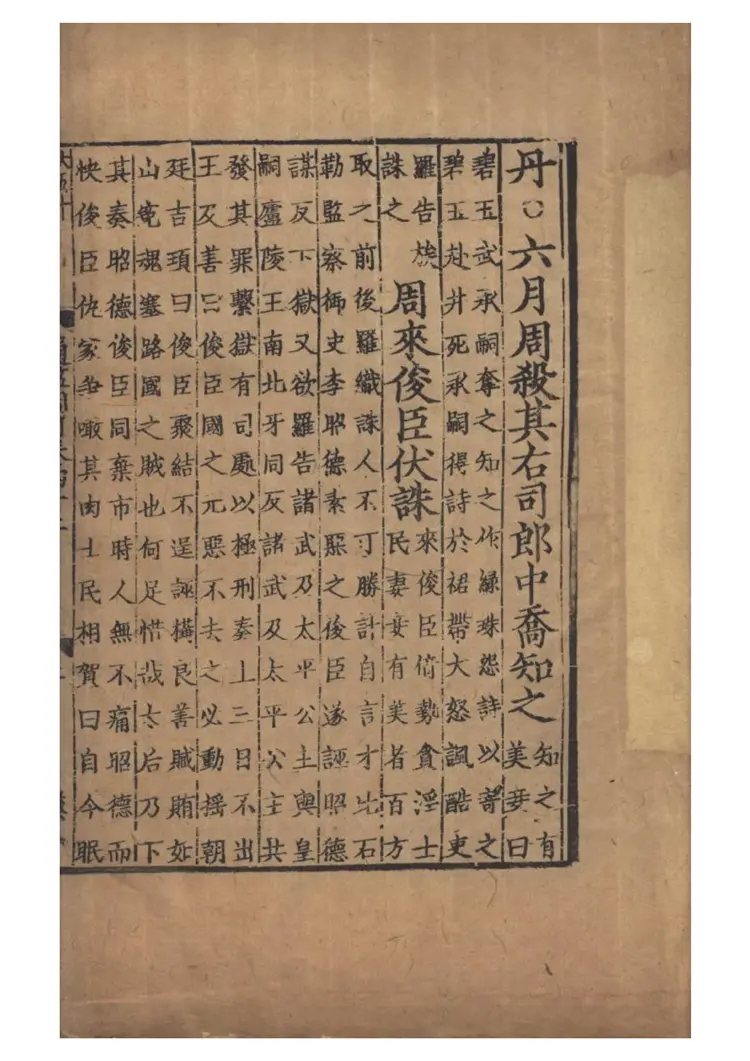 丹○六月周殺其右司郎中喬知之
知之有
美妾曰
碧玉武承嗣奪之知之作綠珠怨詩以寄之
碧玉赴井死承嗣得詩於裙帶大怒諷酷吏
羅告族
誅之
周來俊臣伏誅
來俊臣倚勢貪淫士
民妻妾有美者百方
取之前後羅織誅人不可勝計自言才比石
勒監察御史李昭德素惡之俊臣遂誣昭德
謀反下獄又欲羅告諸武乃太平公主與皇
嗣廬陵王南北牙同反諸武及太平公主共
發其罪繫獄有司處以極刑奏上三日不出
王及善曰俊臣國之元惡不去之必動揺朝
廷吉頊曰俊臣聚結不逞誣搆良善贓賄如
山寃魂塞路國之賊也何足惜哉太后乃下
其奏昭德俊臣同棄市時人無不痛昭德而
快俊臣仇家爭噉其肉士民相賀曰自今眠